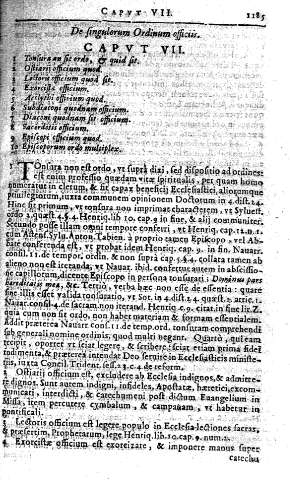 CAPVT VII. 1185
De singulorum Ordinum officiis.
CAPVT VII.
1 Tonsura an sit ordo, & quid sit.
2 Ostiarij officium quod.
3 Lectoris officium quod sit.
4 Exorcistæ officium.
5 Acolythi officium quod.
6 Subdiaconi quodnam officium.
7 Diaconi quodnam sit officium.
8 Sacerdotis officium.
9 Episcopi officium quod.
10 Episcoporum ordo multiplex.
TOnsura non est ordo, vt supra dixi, sed dispositio ad ordines:
est enim professio quædam vitæ spiritualis, per quam homo
numeratur in clerum, & fit capax beneficij Ecclesiastici, aliorumque
priuilegiorum, iuxta communem opinionem Doctorum in 4. dist. 24.
Hinc fit primum, vt tonsura non imprimat characterem, vt Syluest.
ordo 2. quæst. 4. §. 4. Henriq. lib. 10. cap. 9. in fine, & alij communiter.
posse illam omni tempore conferri, vt Henriq. cap. 11.
cum Tabien. à proprio tamen Episcopo, vel Ab-
bate conferenda est, vt probat idem Henriq. cap. 9. in fi. Nauarr.
consil. 11. de tempor. ordin. & non supra cap. 5. §. 4. collata tamen ab
alieno non est iteranda, vt Nauar. ibid. confertur autem in abscissio-
ne capillorum, dicente Episcopo in persona tonsurati: Dominus pars
hæreditatis meæ, &c. Tertiò, verba hæc non esse de essentia: quare
sine illis esset valida tonsuratio, vt Sot. in 4. dist. 24. quæst. 2. artic. 1.
Nauar. consil. 4. de sacram. non iterand. Henriq. c. 9. citat. in fine lit. Z.
quia cum non sit ordo, non habet materiam & formam essentialem.
Addit præterea Nauarr. cons. 11. de temp. ord. tonsuram comprehendi
sub generali nomine ordinis, quod multi negant. Quartò, qui eam
recipit, oportet vt sciat legere, & scribere, sciat etiam prima fidei
rudimenta, & præterea intendat Deo seruire in Ecclesiasticis ministe-
riis, iuxta Concil. Trident. sess. 23. c. 4. de reform.
2 Ostiarij officium est, excludere ab Ecclesia indignos, & admitte-
re dignos. Sunt autem indigni, infideles, Apostatæ, hæretici, excom-
municati, interdicti, & catechumeni post dictum Euangelium in
Missa, item percutere cymbalum, & campanam, vt habetur in
pontificali.
3 Lectoris officium est legere populo in Ecclesia lectiones sacras,
& præsertim, Prophetarum, lege Henriq. lib. 10. cap. 9. num. 2.
4 Exorcistæ officium est exorcizare, & imponere manus super
catechu